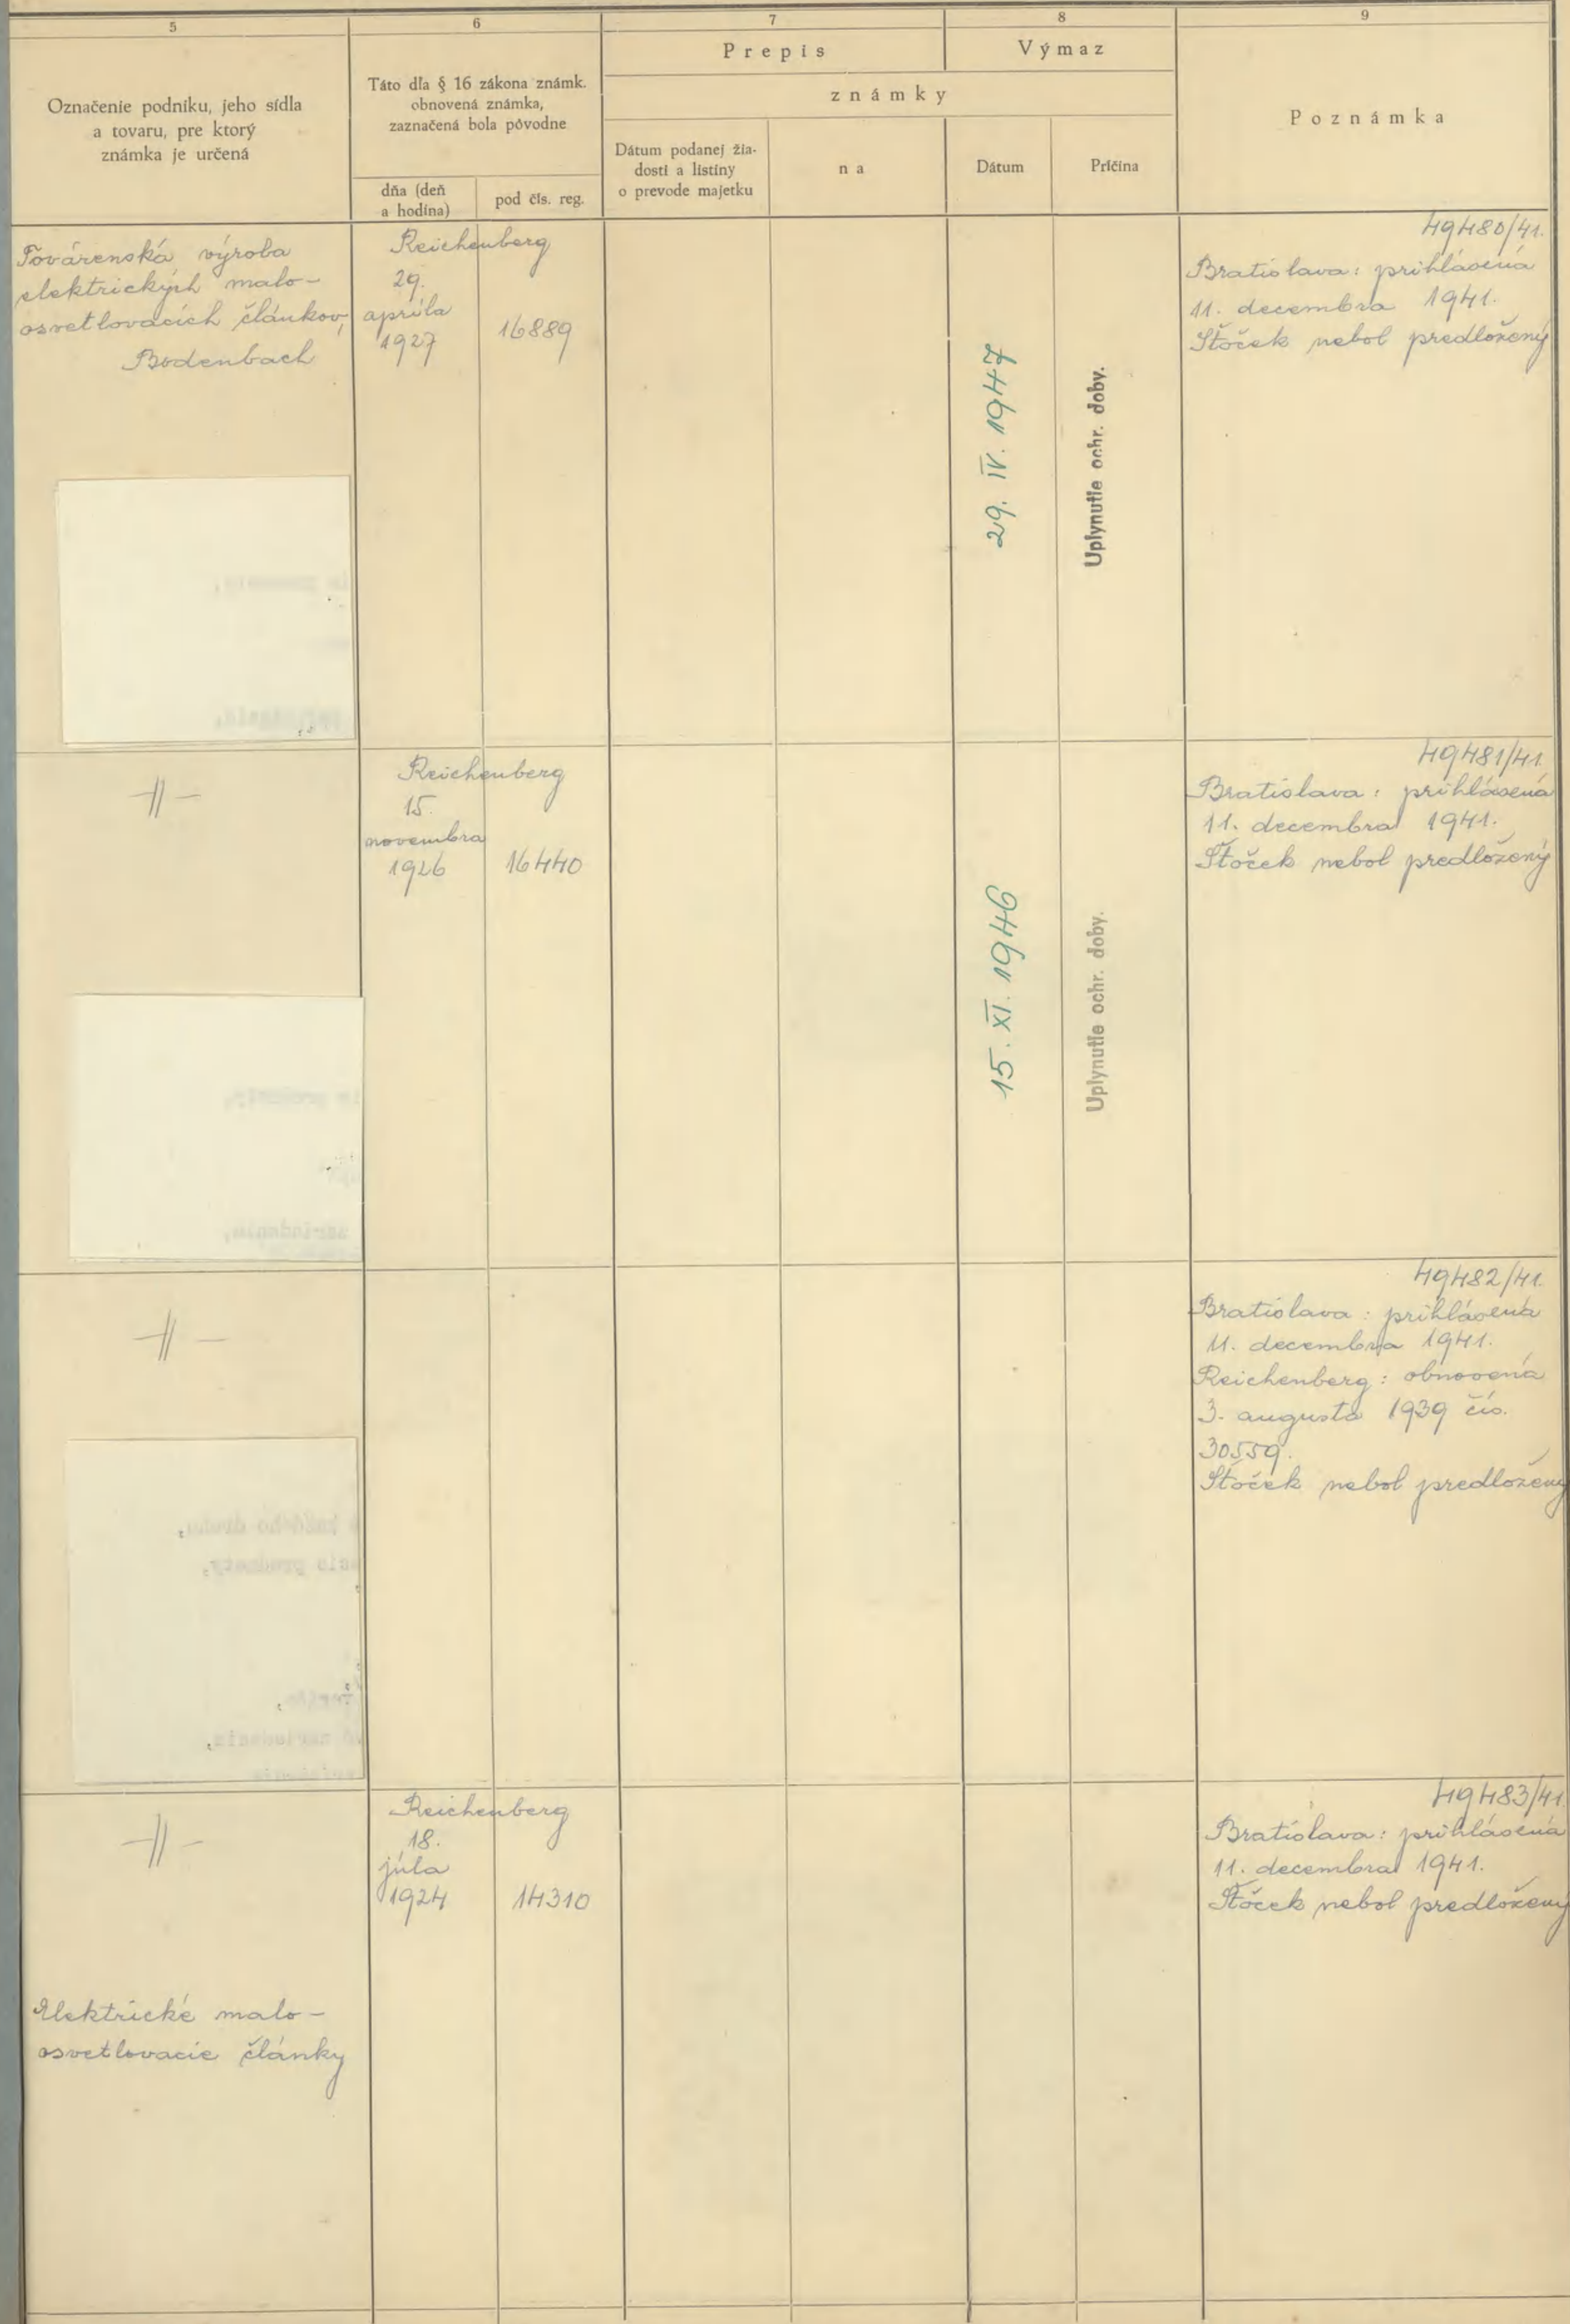 5
6
7
8
9
Označenie podniku, jeho sídla
a tovaru, pre ktorý
známka je určená
Táto dľa § 16 zákona známk.
obnovená známka,
zaznačená bola pôvodne
dňa (deň
a hodina)
pod čís. reg.
Prepis
Výmaz
známky
Dátum podanej žia-
dosti a listiny
o prevode majetku
na
Dátum
Príčina
Poznámka
Továrenská výroba
elektrických malo-
osvetlovacích článkov,
Bodenbach
Reichenberg
29.
apríla
1927
16889
29. IV. 1947
Uplynutie ochr. doby.
49480/41.
Bratislava: prihlásená
11. decembra 1941.
Štoček nebol predložený
-||-
Reichenberg
15.
novembra
1926
16440
15. XI. 1946
Uplynutie ochr. doby.
49481/41.
Bratislava: prihlásená
11. decembra 1941.
Štoček nebol predložený
-||-
49482/41.
Bratislava: prihlásená
11. decembra 1941.
Reichenberg: obnovená
3. augusta 1939 čís.
30559.
Štoček nebol predložený
-||-
Elektrické malo-
osvetlovacie články
Reichenberg
18.
júla
1924
14310
49483/41
Bratislava: prihlásená
11. decembra 1941.
Štoček nebol predložený